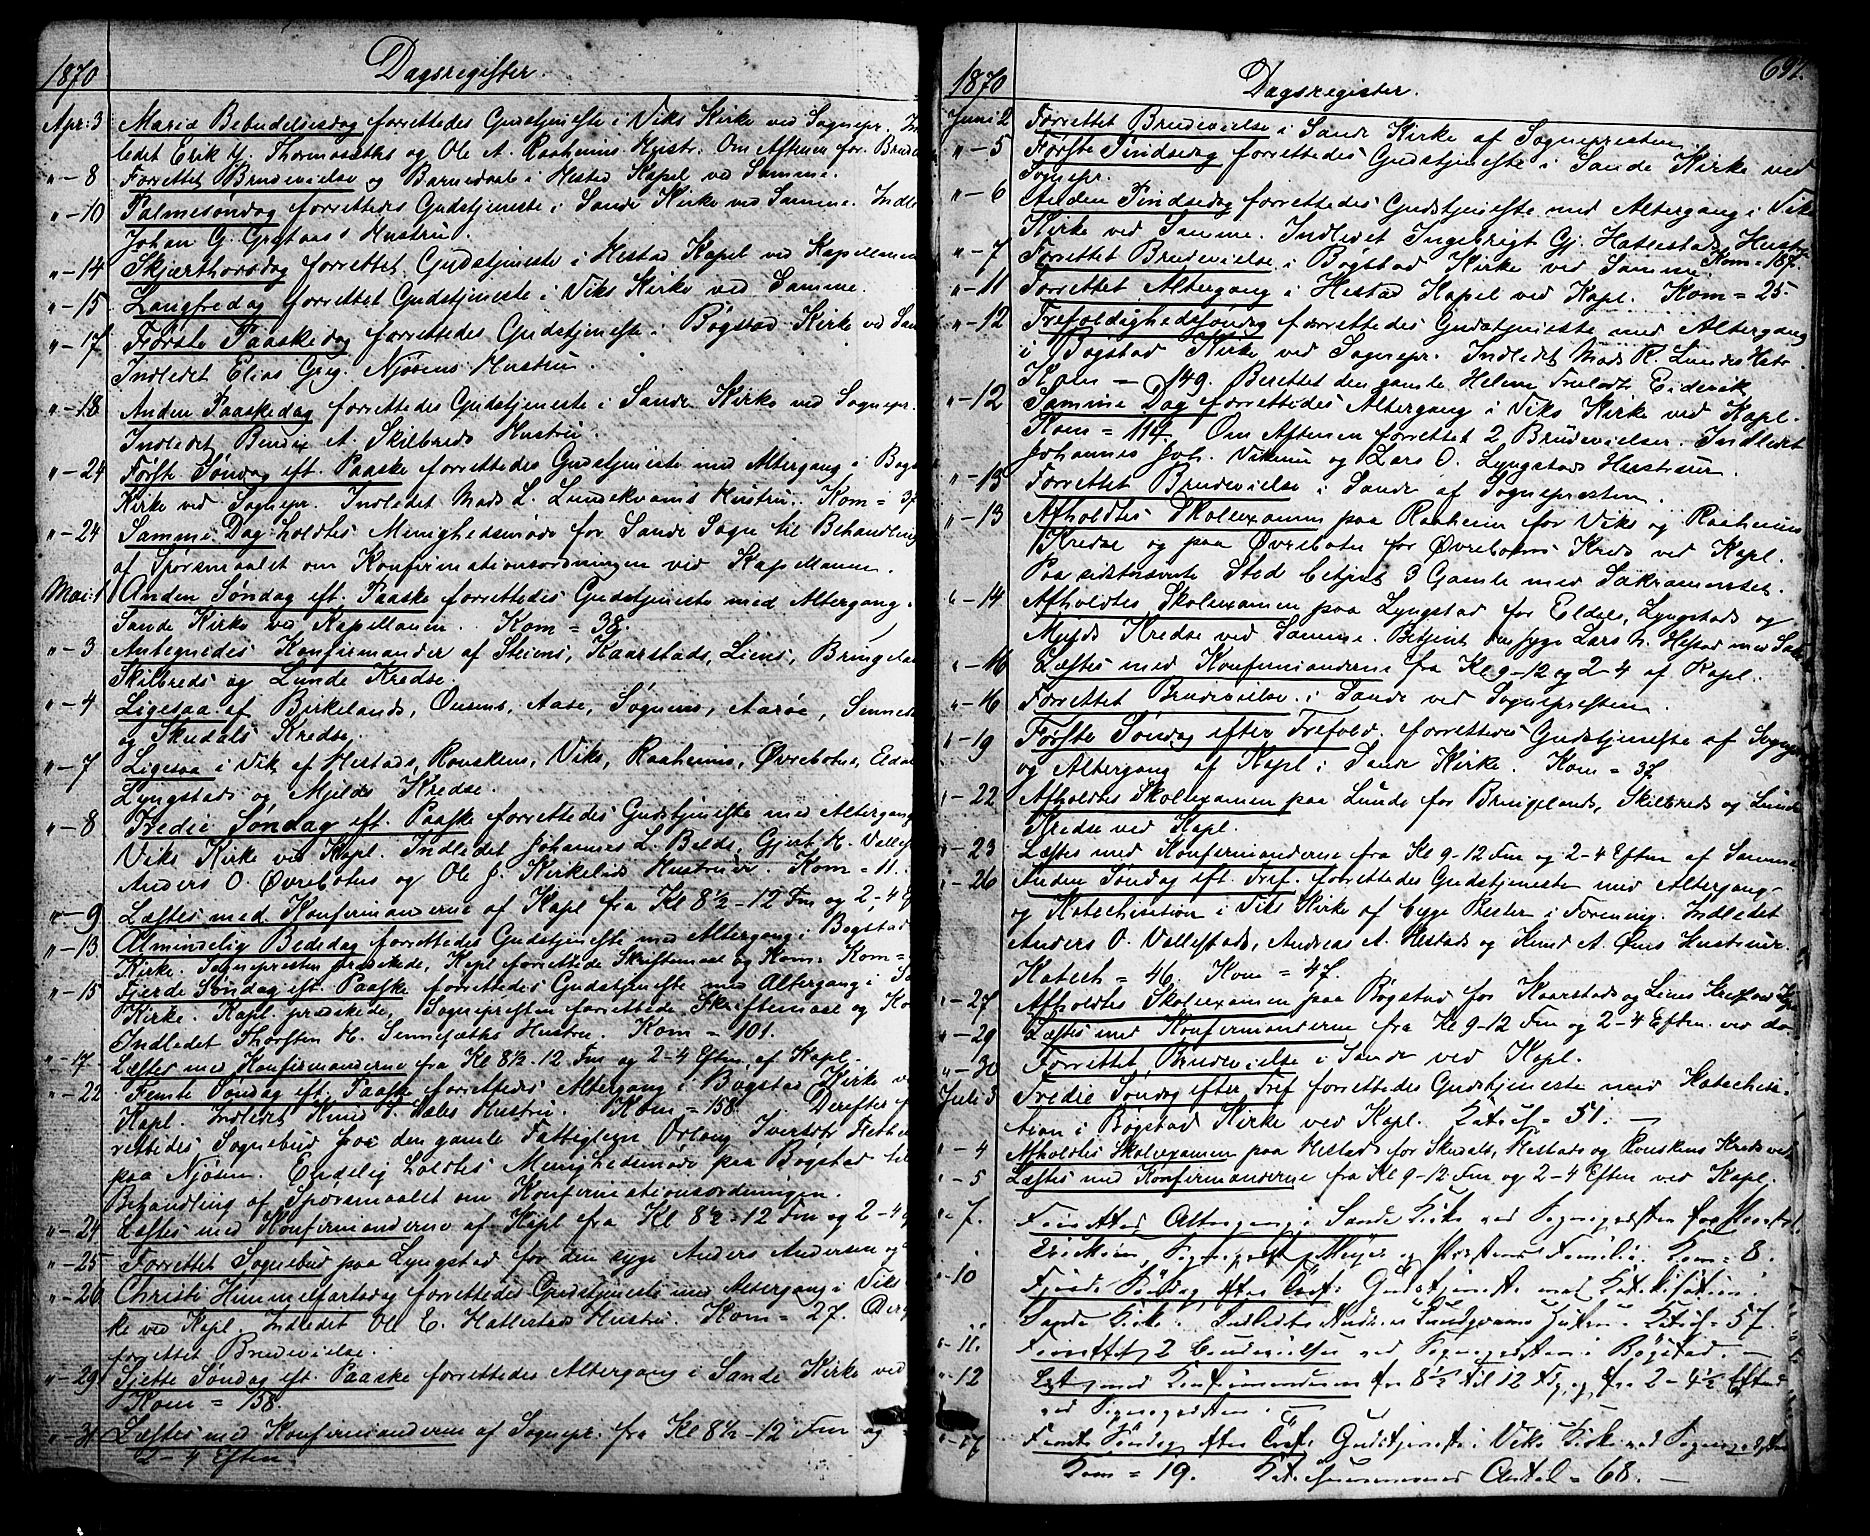 1870 Dagsregister.
Apr. 3 Mariæ Bebudelsesdag forrettedes Gudstjeneste i Viks Kirke ved Sognepr. Ind
ledet Erik Thormosæths og Ole A. Raaheims Hustr. Om Aftenen for. Brude
"-8 Forrettet Brudevielse og Barnedaab i Hestad Kapel ved Samme.
"-10 Palmesøndag forrettedes Gudstjeneste i Sande Kirke ved Samme. Indle
Johan G. Hustru.
"-14 Skjærthorsdag forrettet Gudstjeneste i Hestad Kapel ved Kapellanen
"-15 Langfredag forrettet Gudstjeneste i Viks Kirke ved Samme.
"-17 Første Paaskedag forrettedes Gudstjeneste i Bøgstad Kirke ved Sam
Indledet Elias Greg. Njøsens Hustru.
"-18 Anden Paaskedag forrettedes Gudstjeneste i Sande Kirke ved Sognepr.
Indledet Bendix A. Skilbreds Hustru.
"-24 Første Søndag eft. Paaske forrettedes Gudstjeneste med Altergang i Bøgs
Kirke ved Sognepr. Indledet Mads L. Lundekvams Hustru. Kom = 37
"-24 Samme Dag holdtes Menighedsmøde for Sande Sogn til Behandling
af Spørsmaalet om Konfirmationsordningen ved Kapellanen.
Mai 1 Anden Søndag eft. Paaske forrettedes Gudstjeneste med Altergang i
Sande Kirke ved Kapellanen. Kom = 38.
"-3 Antegnedes Konfirmander af Steiens, Kaarstads, Liens, Bringela
Skilbreds og Lunde Kredse.
"-4 Ligesaa af Birkelands, Ourens, Aase, Søgnens, Aarøe, Sennese
og Skudals Kredse.
"-7 Ligesaa i Vik af Hestads, Rouskens, Viks, Raaheims, Øvrebotns, Eldal
Lyngstads og Mjelds Kredse.
"-8 Tredie Søndag eft. Paaske forrettedes Gudstjeneste med Altergang
Viks Kirke ved Kapl. Indledet Johannes L. Belds, Gjert H. Valles
Anders O. Øvrebotns og Ole J. Kirkelids Hustruer. Kom = 11.
"-9 Læstes med Konfirmanderne af Kapl fra Kl 8½-12 Fm og 2-4 E
"-13 Almindelig Bededag forrettedes Gudstjeneste med Altergang i Bøgstad
Kirke. Sognepresten prædikede, Kapl forrettede Skriftemaal og Kom. Kom =
"-15 Fjerde Søndag eft. Paaske forrettedes Gudstjeneste med Altergang i S
Kirke. Kapl. prædikede, Sognepresten forrettede Skriftemaal og Ko
Indledet Thorsten H. Sennesæths Hustru. Kom = 101.
"-17 Læstes med Konfirmanderne fra Kl 8½-12 Fm og 2-4 Eftm. af Kapl.
"-22 Femte Søndag eft. Paaske forrettedes Altergang i Bøgstad Kirke v
Kapl. Indledet Knud Hustru. Kom = 158. Derefter f
rettedes Sognebud hos den gamle Fattiglem Iversdtr
paa Njøsen. Endelig holdtes Menighedsmøde paa Bøgstad til
Behandling af Spørsmaalet om Konfirmationsordningen.
"-24 Læstes med Konfirmanderne af Kapl fra Kl 8½-12 Fm og 2-4
"-25 Forrettet Sognebud paa Lyngstad for den syge Anders Andersen og
"-26 Christi Himmelfartsdag forrettedes Gudstjeneste med Altergang i Viks
ke ved Kapl. Indledet Ole E. Hatlestads Hustru. Kom = 27. Der
forrettet Brudevielse.
"-29 Sjette Søndag eft. Paaske forrettedes Altergang i Sande Kirke ved
Kom = 158.
"-31 Læstes med Konfirmanderne af Sognepr. fra Kl 8½-12 Fm og
2-4 Eftm.
697.
1870 Dagsregister.
Juni 2 Forrettet Brudevielse i Sande Kirke af Sognepresten.
"-5 Første Pindsedag forrettedes Gudstjeneste i Sande Kirke ved
Sognepr.
"-6 Anden Pindsedag forrettedes Gudstjeneste med Altergang i Viks
Kirke ved Samme. Indledet Ingebrigt Gj. Hatlestads Hustr
Kom = 187.
"-7 Forrettet Brudevielse i Bøgstad Kirke ved Samme.
"-11 Forrettet Altergang i Hestad Kapel ved Kapl. Kom = 25.
"-12 Trefoldighedssøndag forrettedes Gudstjeneste med Altergang
i Bøgstad Kirke ved Sognepr. Indledet Mads R. Lundes Hstr.
Kom = 149. Berettet den gamle Helene Eidevik
"-12 Samme Dag forrettedes Altergang i Viks Kirke ved Kapl.
Kom = 114. Om Aftenen forrettet 2 Brudevielser. Indledet
Johannes Joh. Vikene og Lars O. Lyngstads Hustruer.
"-15 Forrettet Brudevielse i Sande af Sognepresten.
"-13 Afholdtes Skoleexamen paa Raaheim for Viks og Raaheims
Kredse og paa Øvrebotn for Øvrebotns Kreds ved Kapl.
Paa sidstnævnte Sted betjent 3 Gamle med Sakramentet.
"-14 Afholdtes Skoleexamen paa Lyngstad for Eldals, Lyngstads og
Mjelds Kredse ved Samme. Betjent den syge Lars N. Hestad med Sakr
"-16 Læstes med Konfirmanderne fra Kl 9-12 og 2-4 af Kapl.
"-16 Forrettet Brudevielse i Sande ved Sognepresten.
"-19 Første Søndag efter Trefold. forrettedes Gudstjeneste af Sognepr
og Altergang af Kapl i Sande Kirke. Kom = 37
"-22 Afholdtes Skoleexamen paa Lunde for Bringelands, Skilbreds og Lunde
Kredse ved Kapl.
"-23 Læstes med Konfirmanderne fra Kl 9-12 Fm og 2-4 Eftm af Samme
"-26 Anden Søndag eft. Tref. forrettedes Gudstjeneste med Altergang
og Katechisation i Viks Kirke af begge Prester i Forening. Indledet
Anders O. Vallestads, Andreas A. Hestads og Knud A. Øens Hustruer.
Katech = 46. Kom = 47.
"-27 Afholdtes Skoleexamen paa Bøgstad for Kaarstads og Liens Kredse ved
"-29 Læstes med Konfirmanderne fra Kl 9-12 Fm og 2-4 Eftm. ved do
"-30 Forrettet Brudevielse i Sande ved Kapl.
Juli 3 Tredie Søndag efter Tref forrettedes Gudstjeneste med Katechisa-
tion i Bøgstad Kirke ved Kapl. Katech = 51.
"-4 Afholdtes Skoleexamen paa Hestad for Skudals, Hestads og Rouskens Kreds ved
"-5 Læstes med Konfirmanderne fra Kl 9-12 Fm og 2-4 Eftm ved Kapl.
"-7. Forrettet Altergang i Sande Kirke ved Sognepresten for
Meyer og Familie. Kom = 8.
"-10 Fjerde Søndag efter Tref. Gudstjeneste med Katekisation i
Sande Kirke. Indledet Hustru. Katech = 57.
"-11. Forrettet 2 Brudevielser ved Sognepresten i Bøgstad.
"-12 Læst med Konfirmanderne fra 8½ til 12 og fra 2-4½ Efterm
ved Sognepresten.
"-17 Femte Søndag efter Tref. Gudstjeneste i Viks Kirke ved Sognepresten
Kom = 19. Antal = 68.